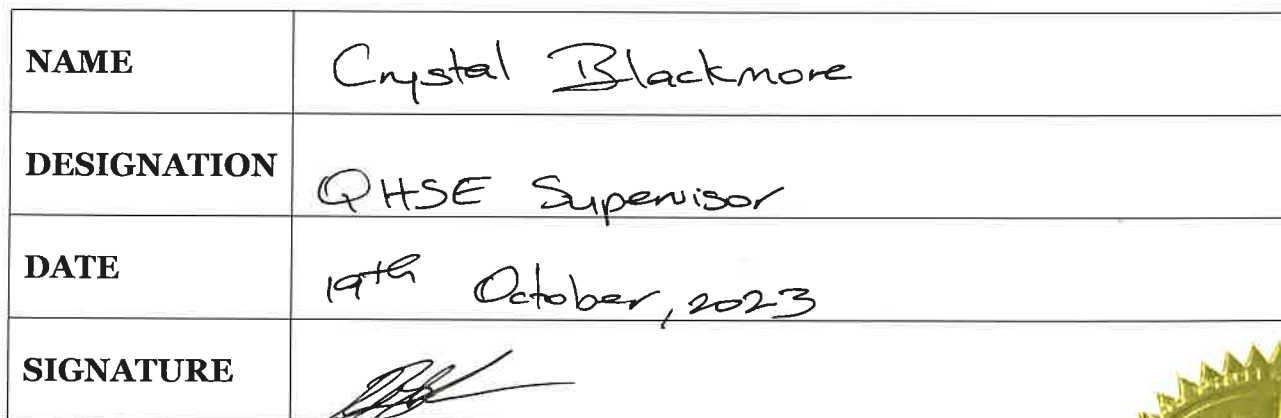 NAME Crystal Blackmore
DESIGNATION QHSE Supervisor
DATE 19th October, 2023
SIGNATURE